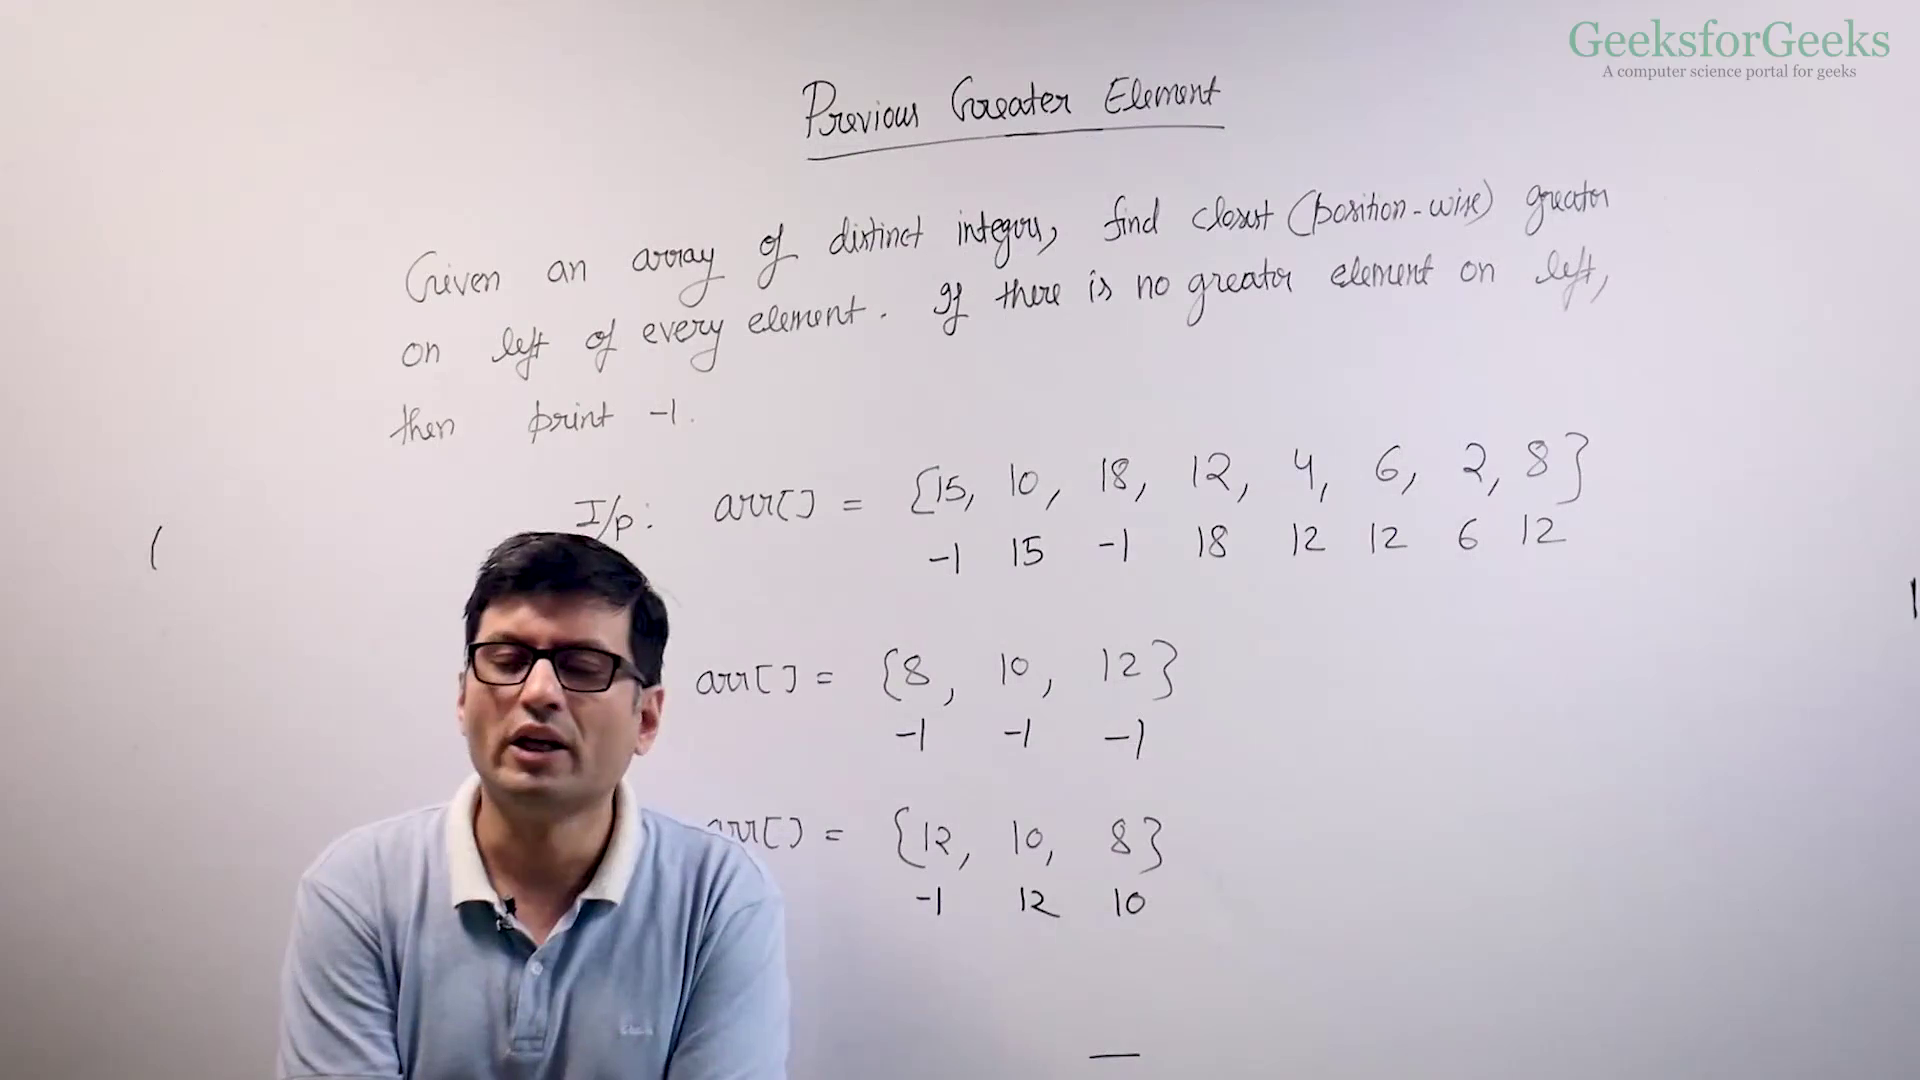 GeeksforGeeks
A computer science portal for geeks
Previous Greater Element
Given an array of distinct integers, find closest (position-wise) greater
on left of every element. If there is no greater element on left,
then print -1.
I/p: arr[] = {15, 10, 18, 12, 4, 6, 2, 8}
-1 15 -1 18 12 12 6 12
arr[] = {8, 10, 12}
-1 -1 -1
arr[] = {12, 10, 8}
-1 12 10